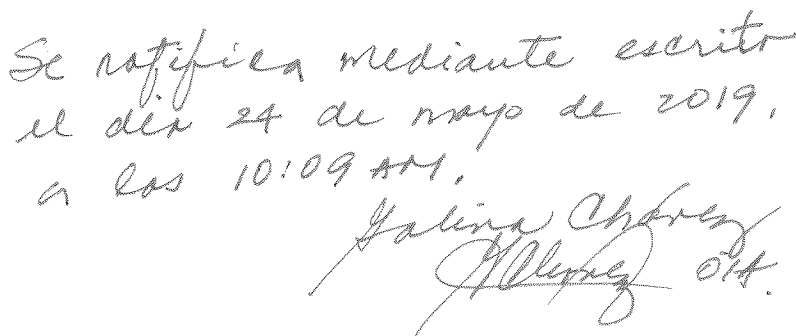 Se notifica mediante escrito
el día 24 de mayo de 2019,
a las 10:09 AM.
Galina Chávez
OIA.